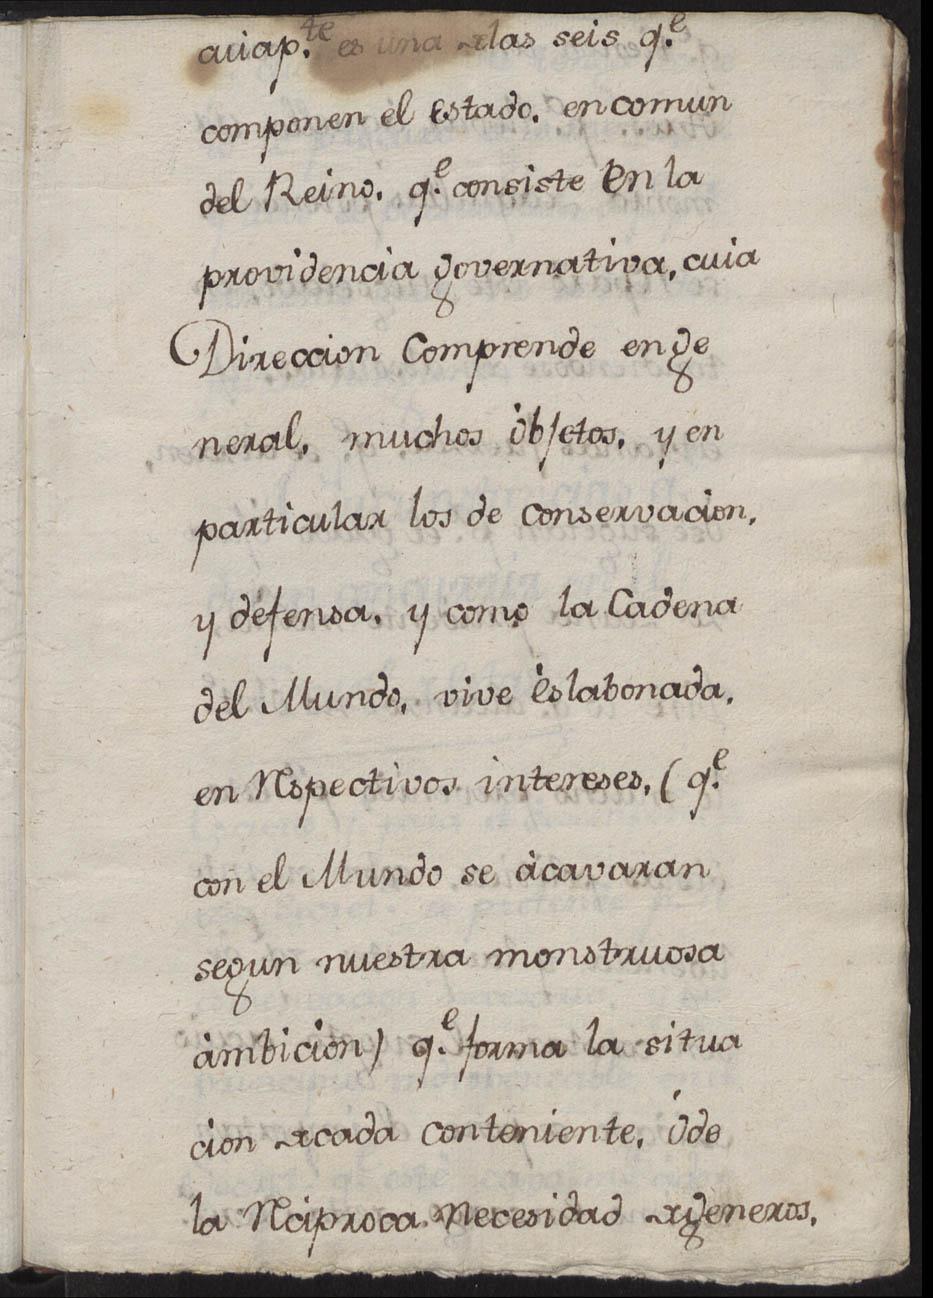 cuia p.te es una de las seis q.e
componen el Estado, en comun
del Reino, q.e consiste en la
providencia governativa, cuia
Direccion Comprende en ge
neral, muchos òbjetos, y en
particular los de conservacion,
y defensa, y como la Cadena
del Mundo, vive èslabonada,
en Respectivos intereses, (q.e
con el Mundo se àcavaran
segun nuestra monstruosa
àmbicion) q.e forma la situa
cion de cada conteniente, ò de
la Reciproca necesidad de generos,